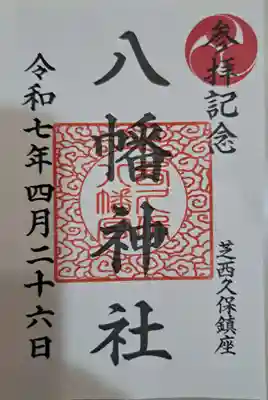 参拝記念
芝西久保鎮座
八幡神社
令和七年四月二十六日